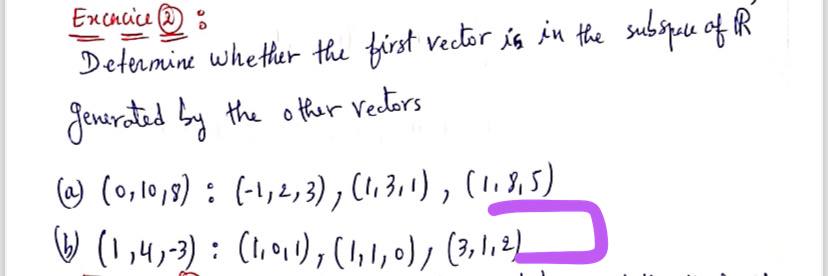 Exercice ② :
Determine whether the first vector is in the subspace of ℝ
generated by the other vectors
(a) (0,10,8) : (-1,2,3), (1,3,1), (1,8,5)
(b) (1,4,-3) : (1,0,1), (1,1,0), (3,1,2)